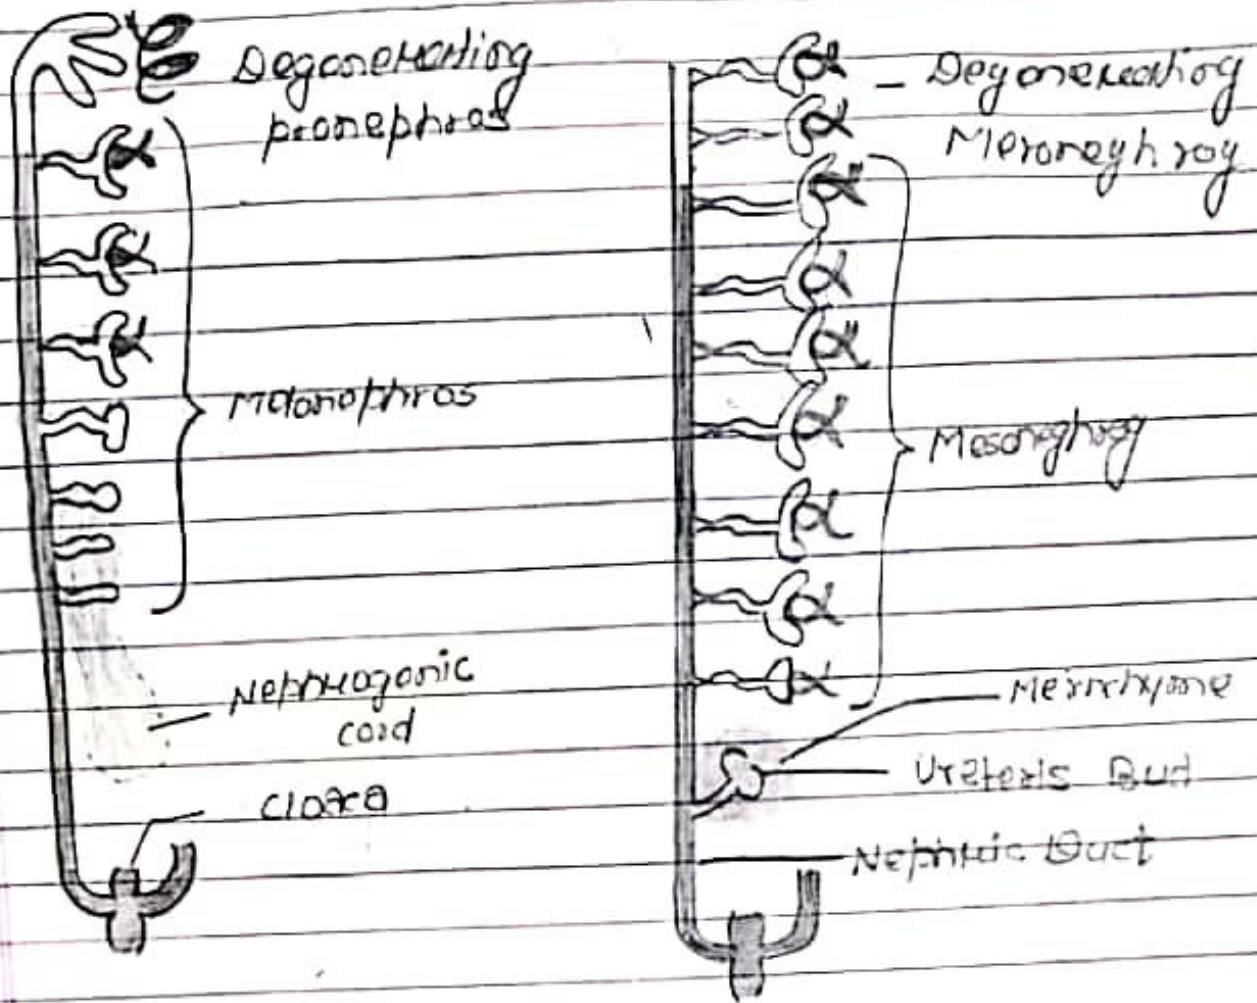 Degenerating
pronephros
Metanephros
Nephrogenic
cord
Cloaca
- Degenerating
Mesoneghrog
Mesoneghrog
Ureteric Bud
Nephric Duct